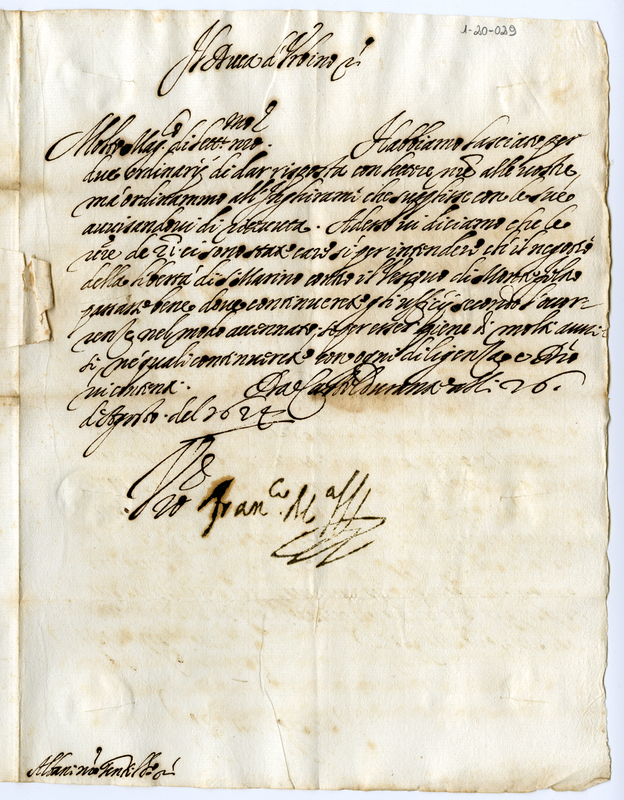 1-20-029
Il Duca d'Urbino &
Molto Mag.co di Lett.
mo. Habbiamo lasciato per
due ordinarij di dar risposta con lettere nre alle vostre
ma ordinammo all'Inghirami che suplisse con le sue
avvisandovi di ricevuta. Adesso vi diciamo che le
vre de ci sono state care si per intendere ch'il negotio
della libertà di S. Marino contro il Vescovo di Montefeltro
passasse bene, dove continuerete gli ufficij secondo l'occor-
renze nel modo accennato, si per esser piene di molti avvi-
si, ne' quali continuerete con ogni diligenza, e Dio
vi conservi. Da Castel Durante alli 26.
d'Agosto del 1624
Vro
Fran.co M.a